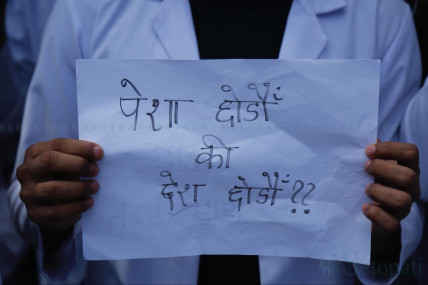 पेशा छोडौं
की
देश छोडौं??